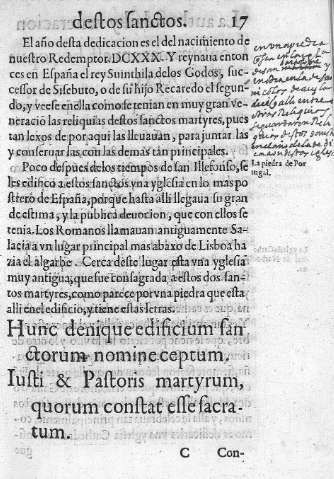 destos sanctos. 17
El año desta dedicacion es el del nacimiento de
nuestro Redemptor. DCXXX. Y reynaua enton
ces en España el rey Suinthila de los Godos, suc-
cessor de Sisebuto, o de su hijo Recaredo el segun-
do, y veese en ella como se tenian en muy gran ve-
neracio las reliquias destos sanctos martyres, pues
tan lexos de por aqui las lleuauan, para juntar las
y conseruar las, con las demas tan principales.
Poco despues de los tiempos de san Illefonso, se
les edifico a estos sanctos vna yglesia en lo mas po
strero de España, porque hasta alli llegaua su gran
de estima, y la publica deuocion, que con ellos se
tenia. Los Romanos llamauan antiguamente Sa-
lacia a vn lugar principal mas abaxo de Lisboa ha
zia el algarbe. Cerca deste lugar esta vna yglesia
muy antigua, que fue consagrada a estos dos san-
tos martyres, como parece por vna piedra que esta
alli en el edificio, y tiene estas letras.
Hunc denique edificium san
ctorum nomine ceptum.
Iusti & Pastoris martyrum,
quorum constat esse sacra-
tum.
C Con-
La piedra de Por
tugal.